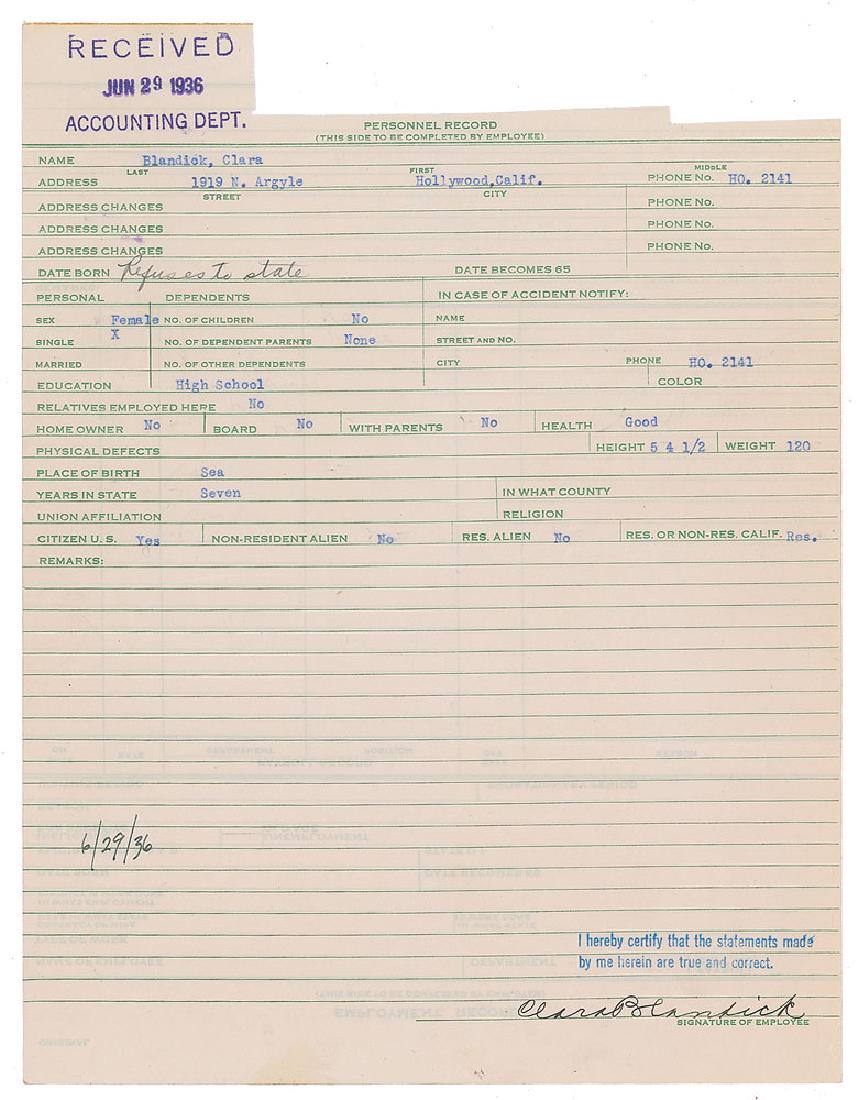 RECEIVED
JUN 29 1936
ACCOUNTING DEPT.
PERSONNEL RECORD
(THIS SIDE TO BE COMPLETED BY EMPLOYEE)
NAME Blandick, Clara
LAST FIRST MIDDLE
ADDRESS 1919 N. Argyle Hollywood, Calif. PHONE NO. HO. 2141
STREET CITY
ADDRESS CHANGES PHONE NO.
ADDRESS CHANGES PHONE NO.
ADDRESS CHANGES PHONE NO.
DATE BORN Refuses to state DATE BECOMES 65
PERSONAL DEPENDENTS IN CASE OF ACCIDENT NOTIFY:
SEX Female NO. OF CHILDREN No NAME
SINGLE X NO. OF DEPENDENT PARENTS None STREET AND NO.
MARRIED NO. OF OTHER DEPENDENTS CITY PHONE HO. 2141
EDUCATION High School COLOR
RELATIVES EMPLOYED HERE No
HOME OWNER No BOARD No WITH PARENTS No HEALTH Good
PHYSICAL DEFECTS HEIGHT 5 4 1/2 WEIGHT 120
PLACE OF BIRTH Sea
YEARS IN STATE Seven IN WHAT COUNTY
UNION AFFILIATION RELIGION
CITIZEN U. S. Yes NON-RESIDENT ALIEN No RES. ALIEN No RES. OR NON-RES. CALIF. Res.
REMARKS:
6/29/36
I hereby certify that the statements made
by me herein are true and correct.
Clara Blandick
SIGNATURE OF EMPLOYEE